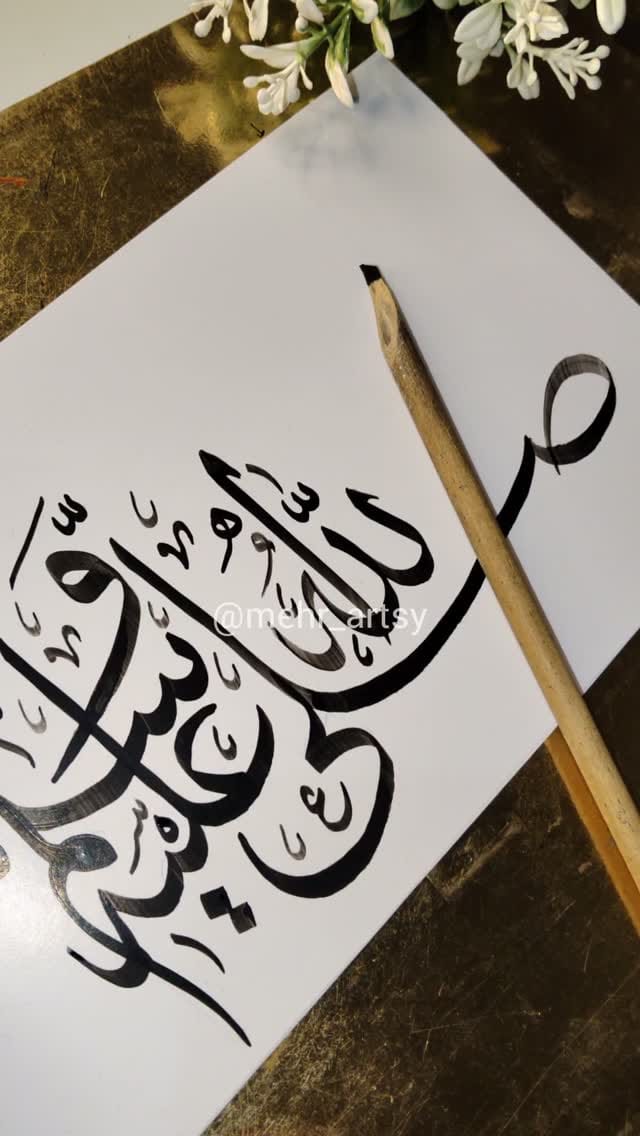 صلى الله عليه وسلم
@mehr_artsy